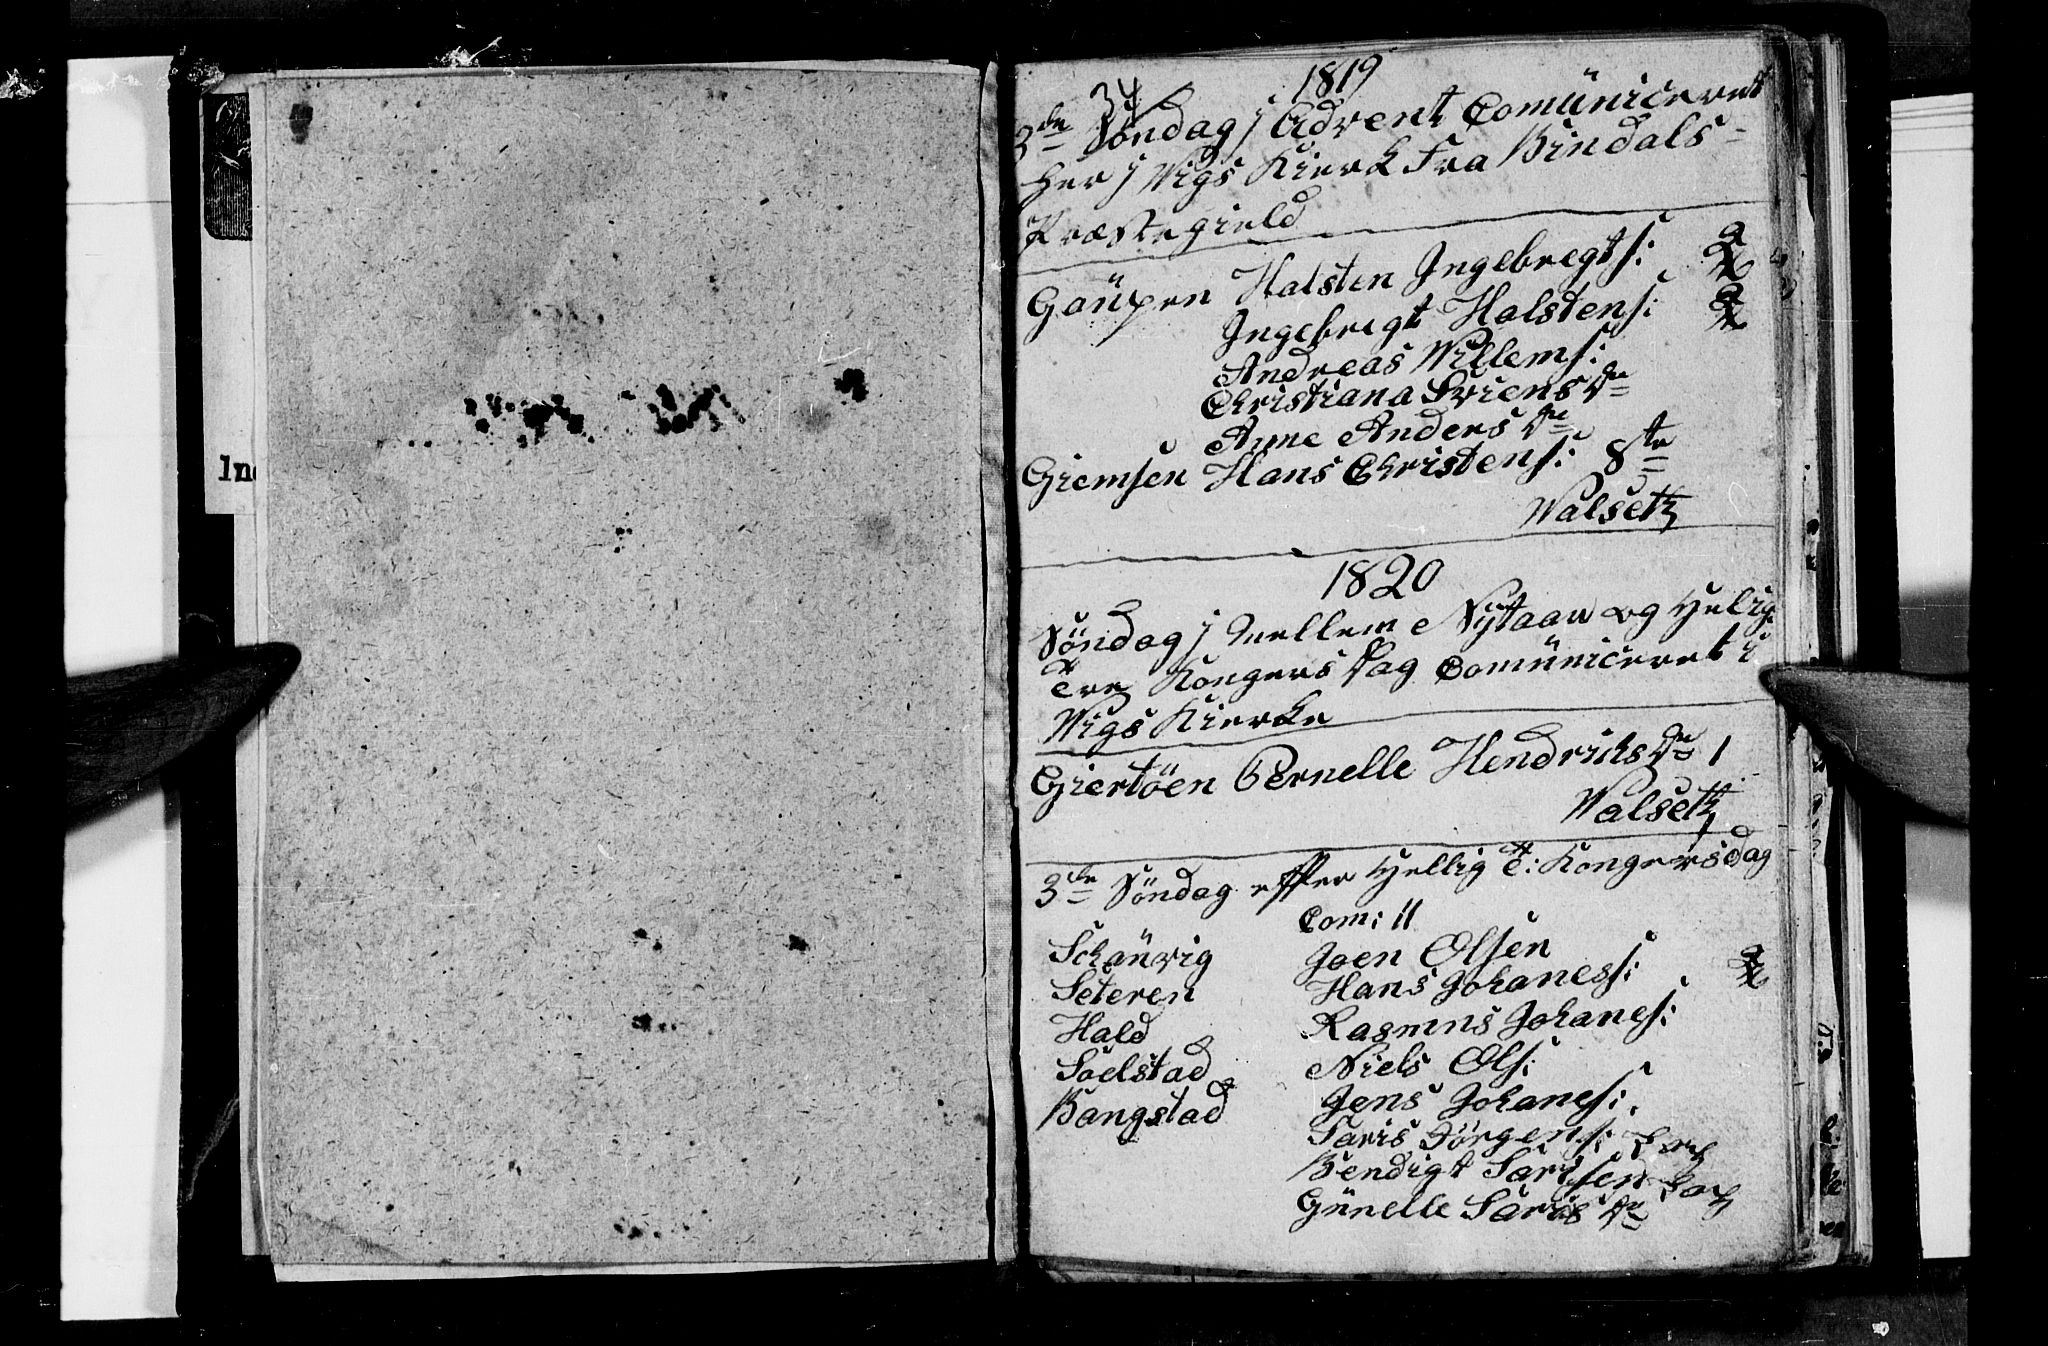 Ind
34
1819
3de Søndag j Advent Comüniceret
her j Wigs Kierk Fra Bindals-
Præstegield
Gaüpen Halsten Ingebregts:
Ingebregt Halstens:
Andreas Willems:
Christiana Sviens Dr
Anne Anders Dr
Giemsen Hans Christens: 8te
Walseth
1820
Søndag j mellem Nÿtaar og Helig
Tre Kongers Dag Comüniceret i
Wigs Kierke
Giertöen Pernelle Hendrichs Dr 1
Walseth
3de Søndag efter Hellig T: Kongersdag
Com: 11
Schaüvig Joen Olsen
Seteren Hans Johaness:
Hald Rasmus Johanes:
Soelstad Niels Ols:
Bangstad Jens Johanes:
Saris Jörgens:
Bendigt Sarisen
Günelle Saris Dr